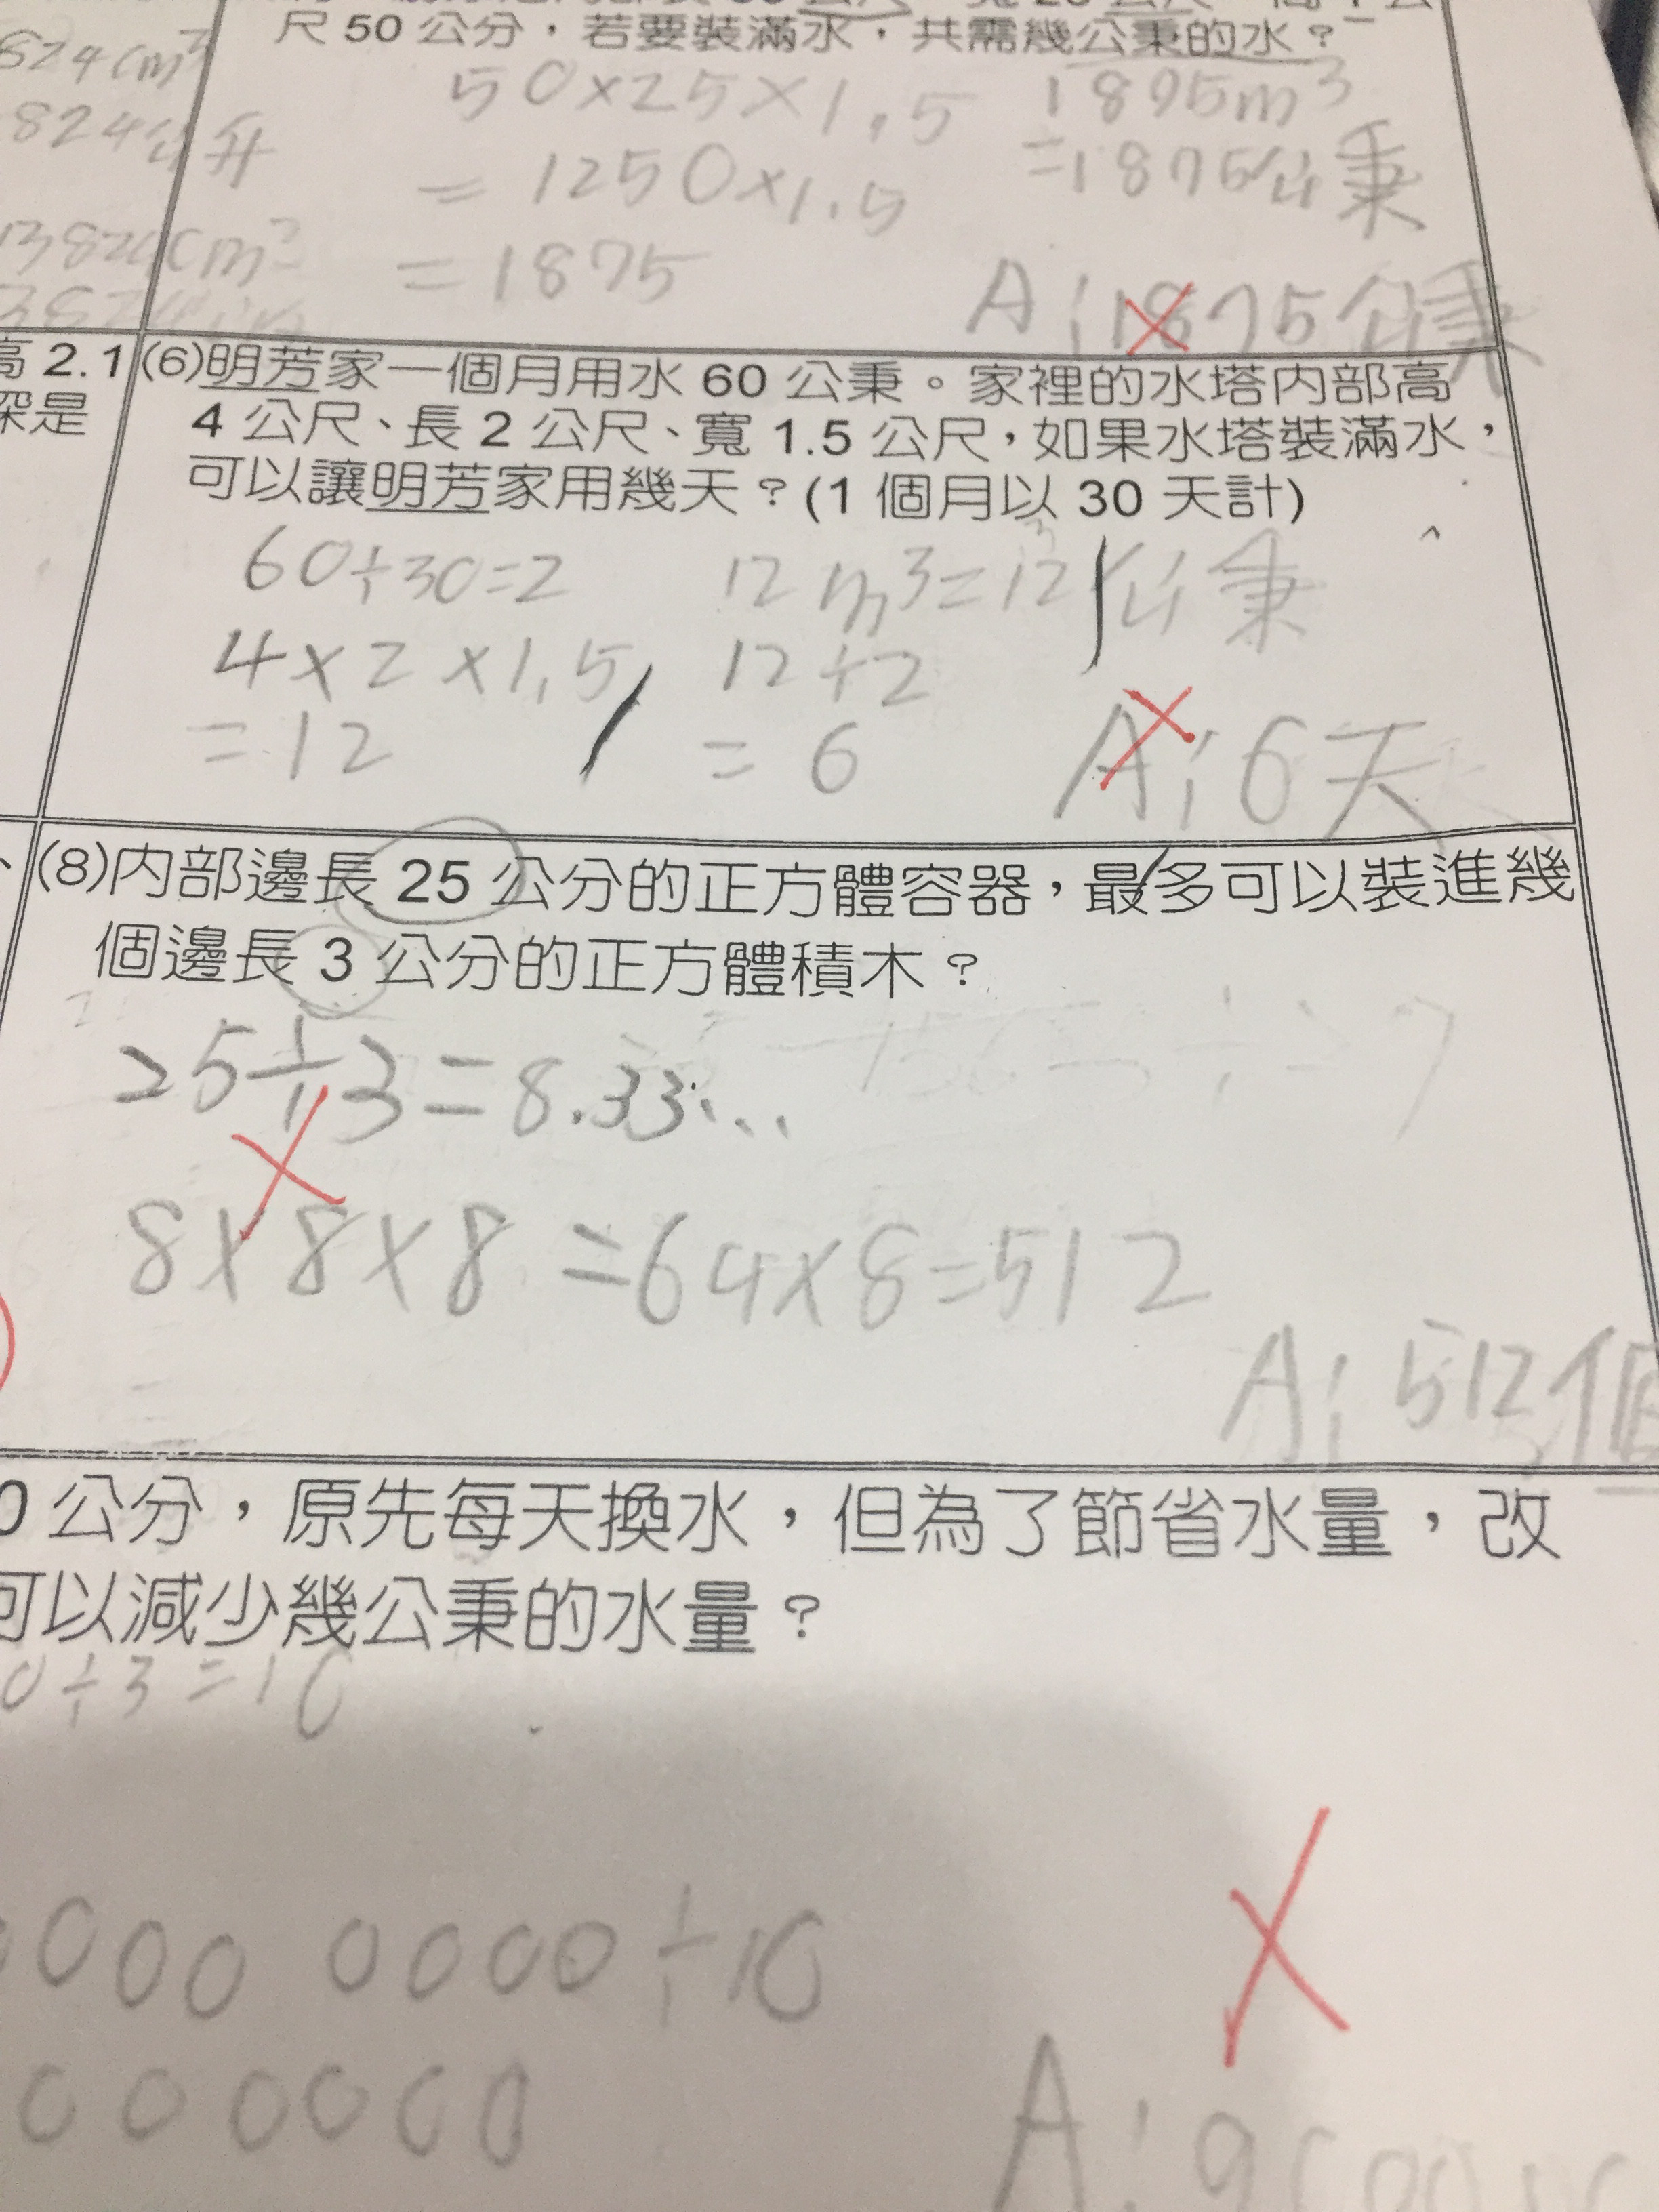 尺 50 公分，若要裝滿水，共需幾公秉的水？
824公升
50×25×1.5
=1250×1.5
=1875
1875m³
=1875公秉
A：1875公秉
高 2.1
深是
(6)明芳家一個月用水 60 公秉。家裡的水塔內部高
4 公尺、長 2 公尺、寬 1.5 公尺，如果水塔裝滿水，
可以讓明芳家用幾天？(1 個月以 30 天計)
60÷30=2
4×2×1.5
=12
12m³=12公秉
12÷2
=6
A：6天
(8)內部邊長 25 公分的正方體容器，最多可以裝進幾
個邊長 3 公分的正方體積木？
25÷3=8.33...
8×8×8=64×8=512
A：512個
0 公分，原先每天換水，但為了節省水量，改
可以減少幾公秉的水量？
0÷3=10
0000000÷10
000000